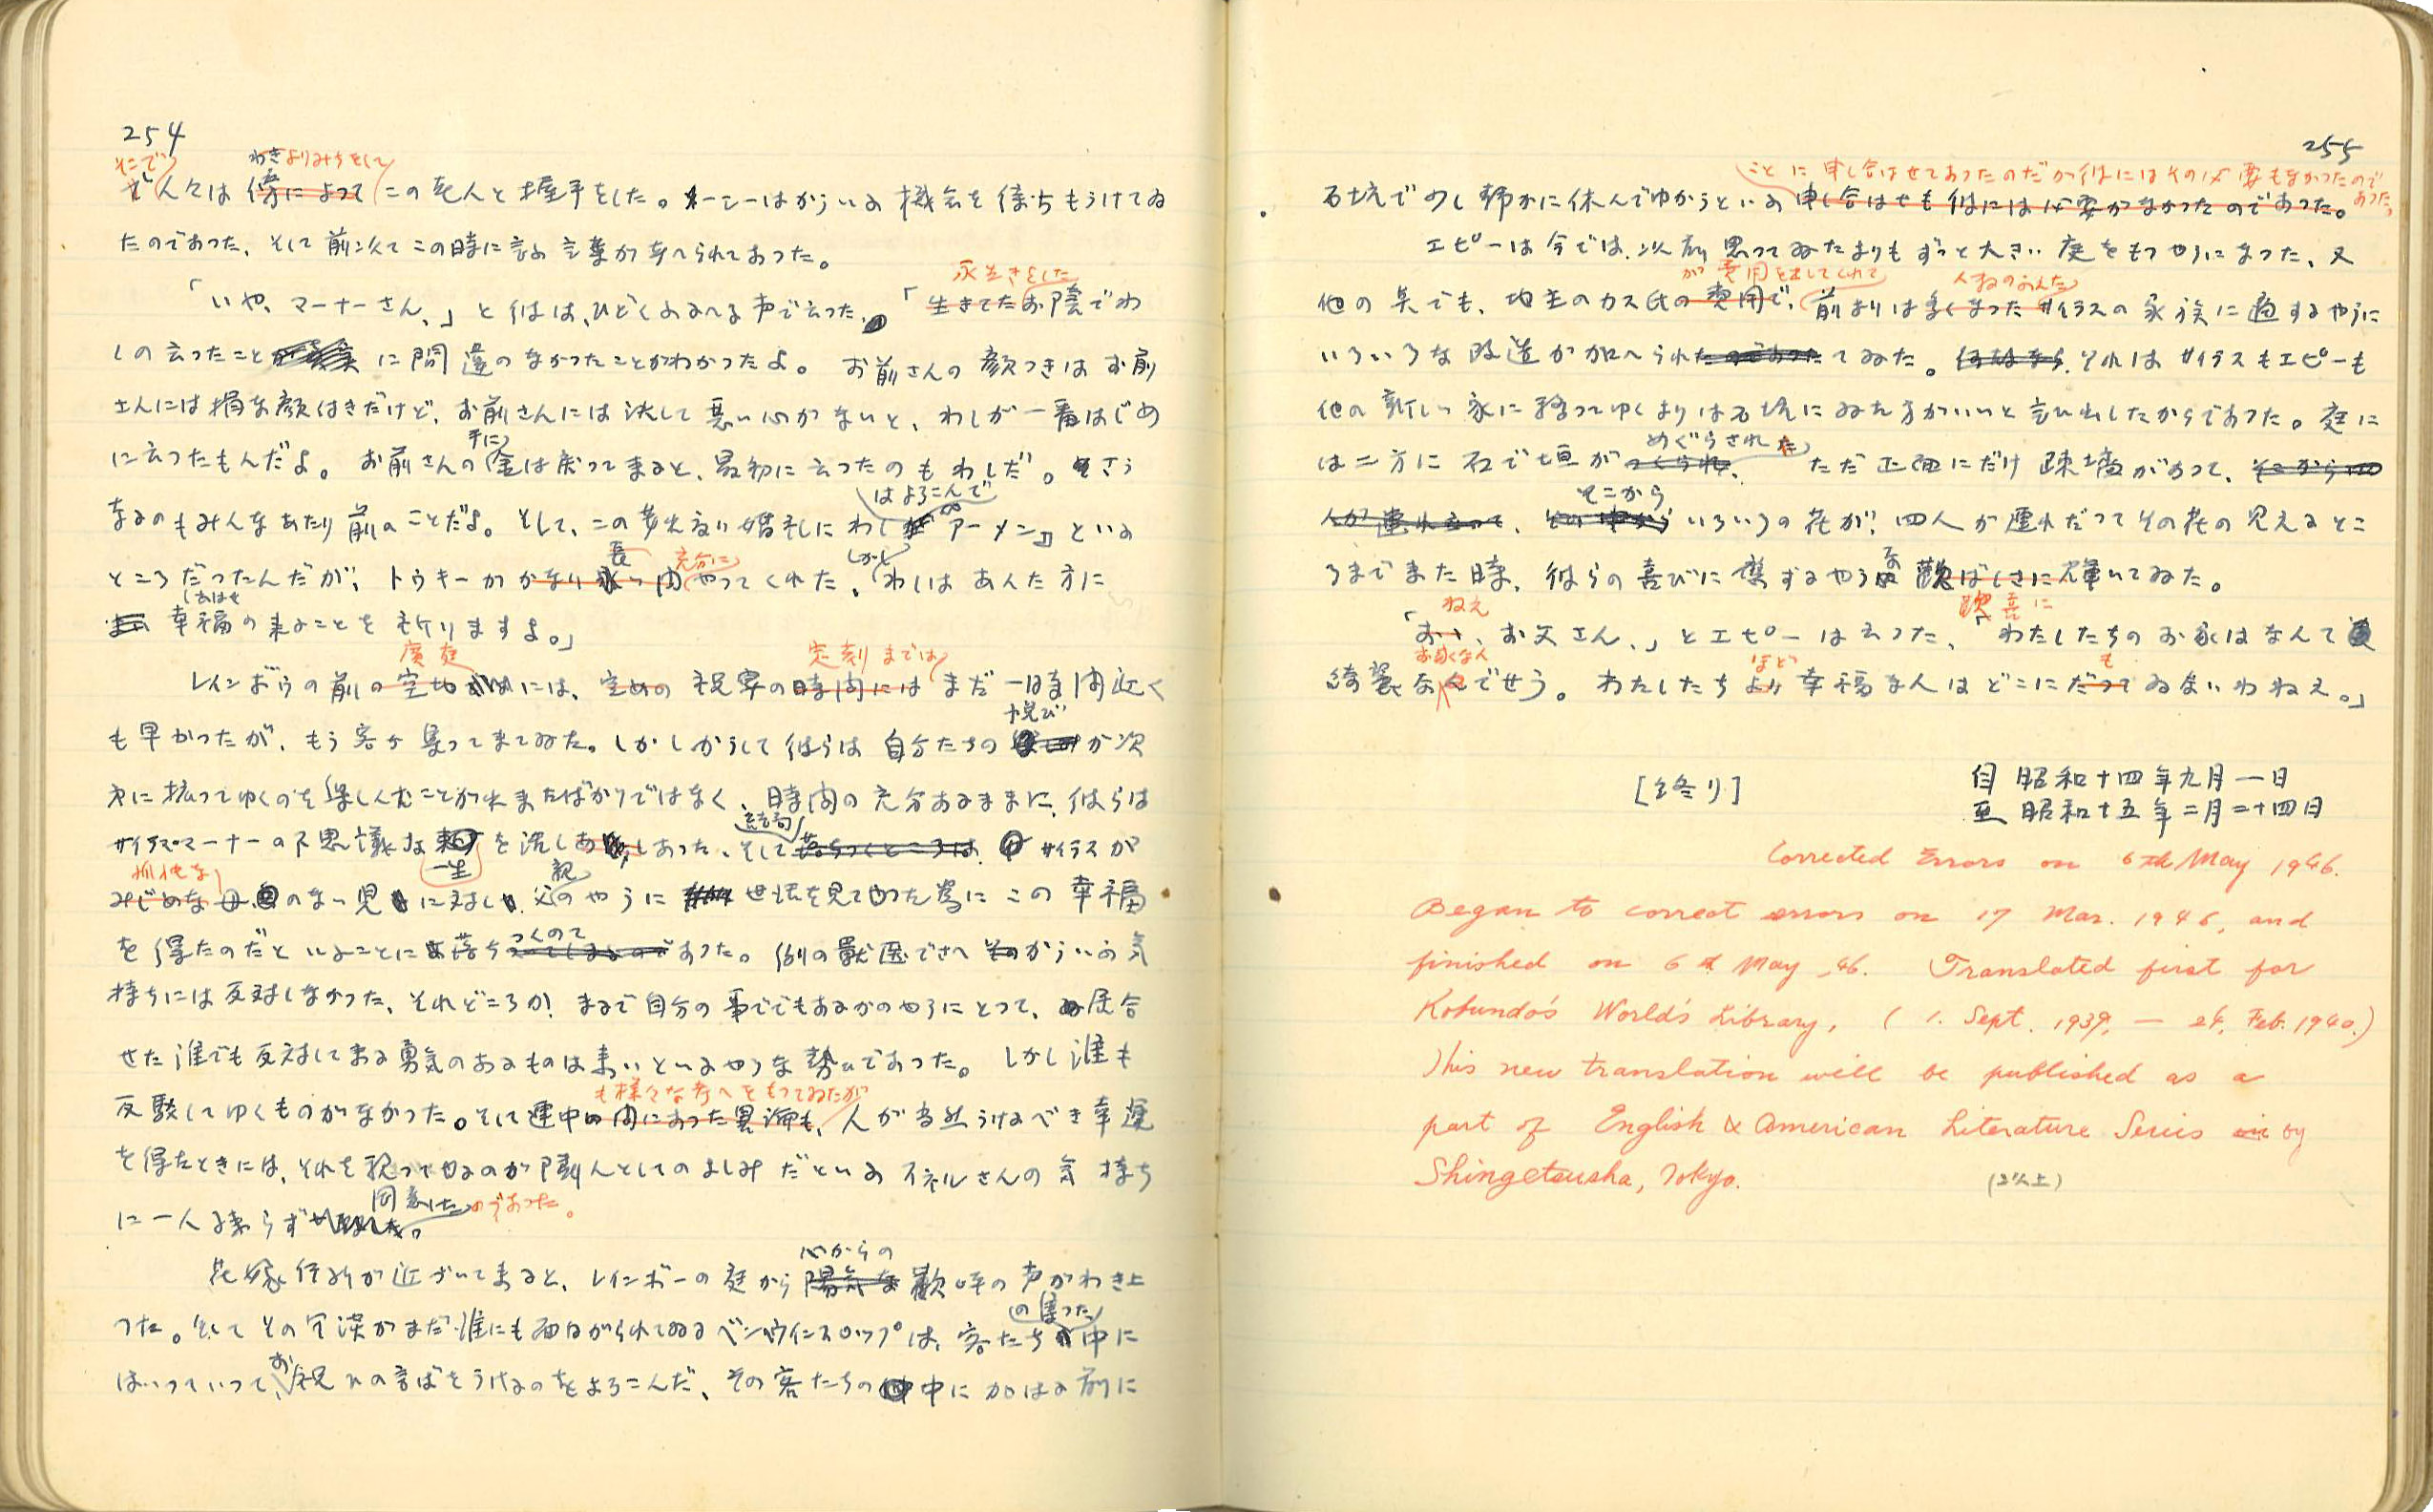 254
そこで わきよりみちをして
で人々は傍によつてこの老人と握手をした。メーシーはかういふ機会を待ちもうけてゐ
たのであつた、そして前以てこの時に言ふ言葉が考へられてあつた。
永生きをした
「いや、マーナーさん、」と彼は、ひどくふるへる声で云つた、「生きてたお陰でわ
しの云つたことに間違のなかつたことがわかつたよ。お前さんの顔つきはお前
さんには損な顔付きだけど、お前さんには決して悪い心がないと、わしが一番はじめ
手に
に云つたもんだよ。お前さんの金は戻つてまると、最初に云つたのもわしだ。さう
はよろこんで
なるのもみんなあたり前のことだよ。そして、この芽出度い婚礼にわし アーメン」といふ
長 充分に しかし
ところだつたんだが、トウキーがかなり永い間やつてくれた、わしはあんた方に
しあはせ
幸福の来ることを祈りますよ。」
廣庭 定刻までは
レインボウの前の空地には、定めの祝宴の時間にはまだ一時間近く
悦び
も早かつたが、もう客が集つてきてゐた。しかしかうして彼らは自分たちの が次
第に拡つてゆくのを楽しむことが出来たばかりではなく、時間の充分あるままに、彼らは
結局
サイラス・マーナーの不思議な を話しあ しあつた、そして落ちつくところは サイラスが
孤独な 一生 親
みじめな母のない児に対し 父のやうに 世話を見てやつた為にこの幸福
つくので
を得たのだといふことに落ち あつた。例の獣医でさへ かういふ気
持ちには反対しなかつた、それどころか!まるで自分の事ででもあるかのやうにとつて、居合
せた誰でも反対してまる勇気のあるものは来いといふやうな勢ひであつた。しかし誰も
も様々な考へをもつてゐたが
反駁してゆくものがなかつた。そして連中の間にあつた異論も、人が当然うけるべき幸運
を得たときには、それを祝つてやるのが隣人としてのよしみだといふスネルさんの気持ち
同意したのであつた。
に一人残らず
心からの
花嫁行列が近づいてまると、レインボーの庭から陽気な歓呼の声がわき上
の集つた
つた。そしてその冗談がまだ誰にも面白がられてゐるベン・ウインスロップは、客たち 中に
お
はいつていつて、祝ひの言ばをうけるのをよろこんだ、その客たちの中に加はる前に
255
ことに申し合はせてあつたのだが彼にはその必要もなかつたので
あつた。
石坑で少し静かに休んでゆかうといふ申し合はせも彼には必要がなかつたのであつた。
エピーは今では、以前思つてゐたよりもずつと大きい庭をもつやうになつた、又
が費用を出してくれて 人ねのふえた
他の点でも、地主のカス氏の費用で、前よりは多くなつたサイラスの家族に適するやうに
いろいろな改造が加へられたのであつた てゐた。何故なら、それはサイラスもエピーも
他の新しい家に移つてゆくよりは石坑にゐた方がいいと言ひ出したからであつた。庭に
めぐらされた
は二方に石で垣がつくられ、ただ正面にだけ疎墻があつて、そこから
そこから
人が連れだつて、その中から いろいろの花が!四人が連れだつてその花の見えるとこ
な
ろまできた時、彼らの喜びに応ずるやう 歓ばしさに輝いてゐた。
ねえ 歓喜に
「おゝ、お父さん、」とエピーは云つた、「わたしたちのお家はなんて
お家なん ほど も
綺麗なんでせう。わたしたちより幸福な人はどこにだつてゐないわねえ。」
[終り]
自 昭和十四年九月一日
至 昭和十五年二月二十四日
Corrected Errors on 6th May 1946.
Began to correct errors on 17 Mar. 1946, and
finished on 6th May, 46. Translated first for
Kobundo's World's Library, ( 1. Sept. 1939, — 24, Feb. 1940.)
This new translation will be published as a
part of English & American Literature Series in by
Shingetsusha, Tokyo.
(以上)